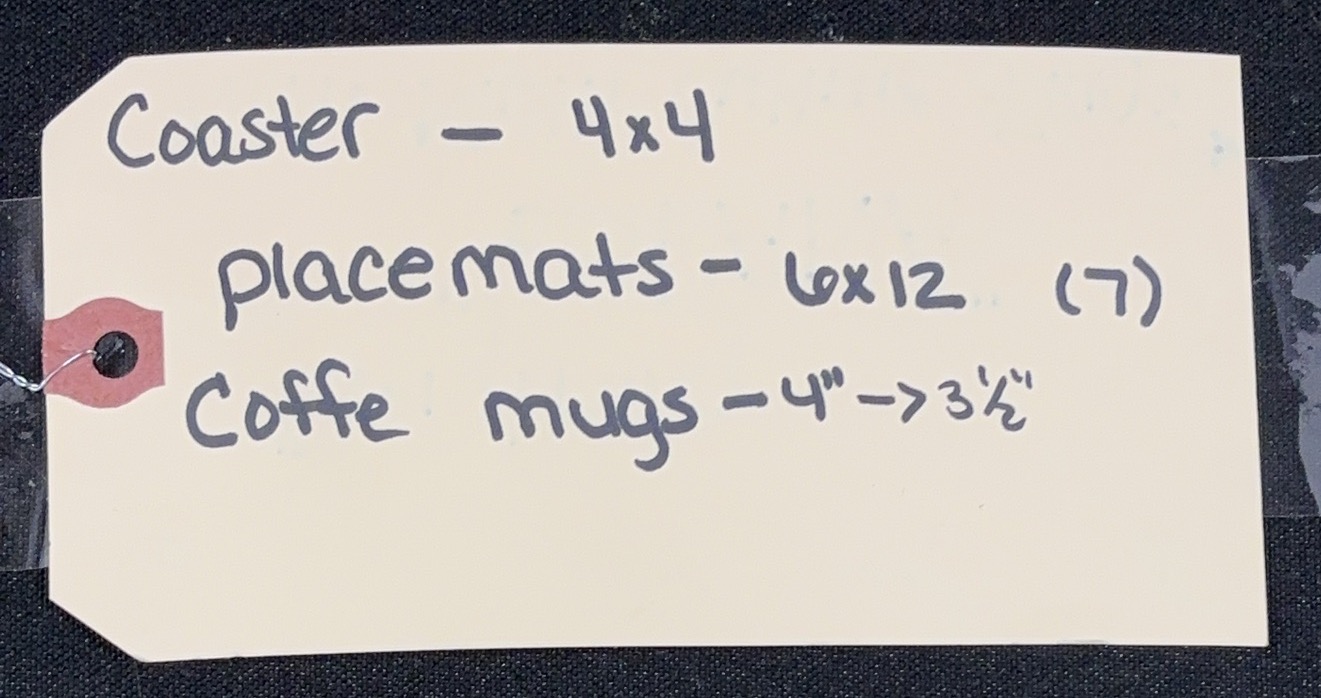 Coaster - 4x4
placemats - 6x12 (7)
Coffe mugs - 4" -> 3 ½"